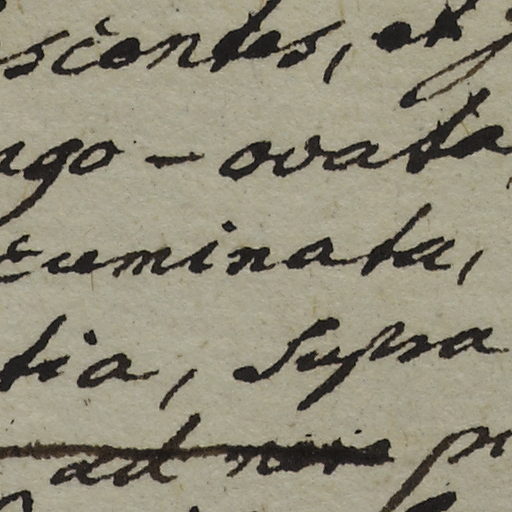 scentes, et
ngo-ovata
cuminata,
tia, supra
ad